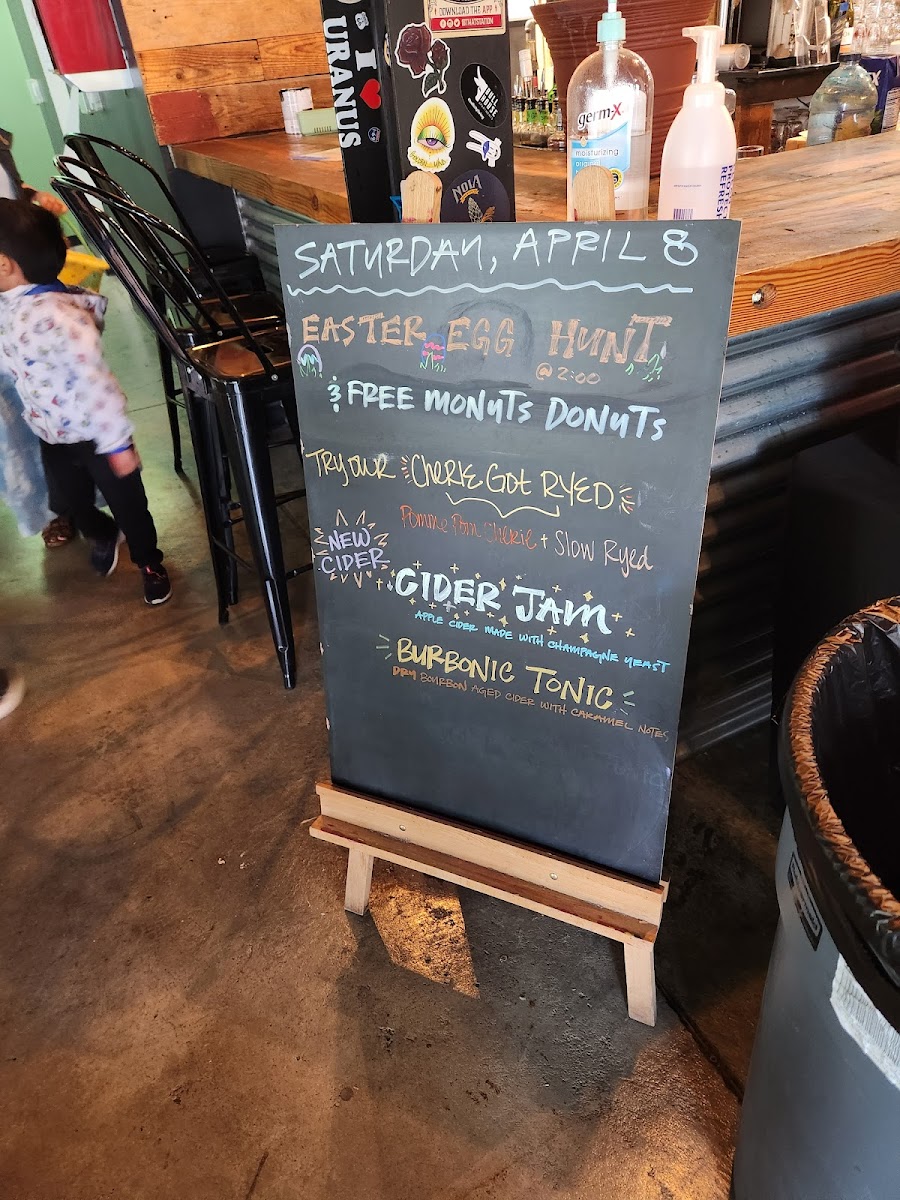 DOWNLOAD THE APP
@EATMYSTATION
I ♥ URANUS
FULL HOUSE
NOLA
germ-x
moisturizing
original
SATURDAY, APRIL 8
EASTER EGG HUNT
@ 2:00
& FREE MONUTS DONUTS
TRY OUR CHERIE GOT RYED
Pomme Pom Cherie + Slow Ryed
NEW
CIDER
CIDER JAM
APPLE CIDER MADE WITH CHAMPAGNE YEAST
BURBONIC TONIC
DRY BOURBON AGED CIDER WITH CARAMEL NOTES